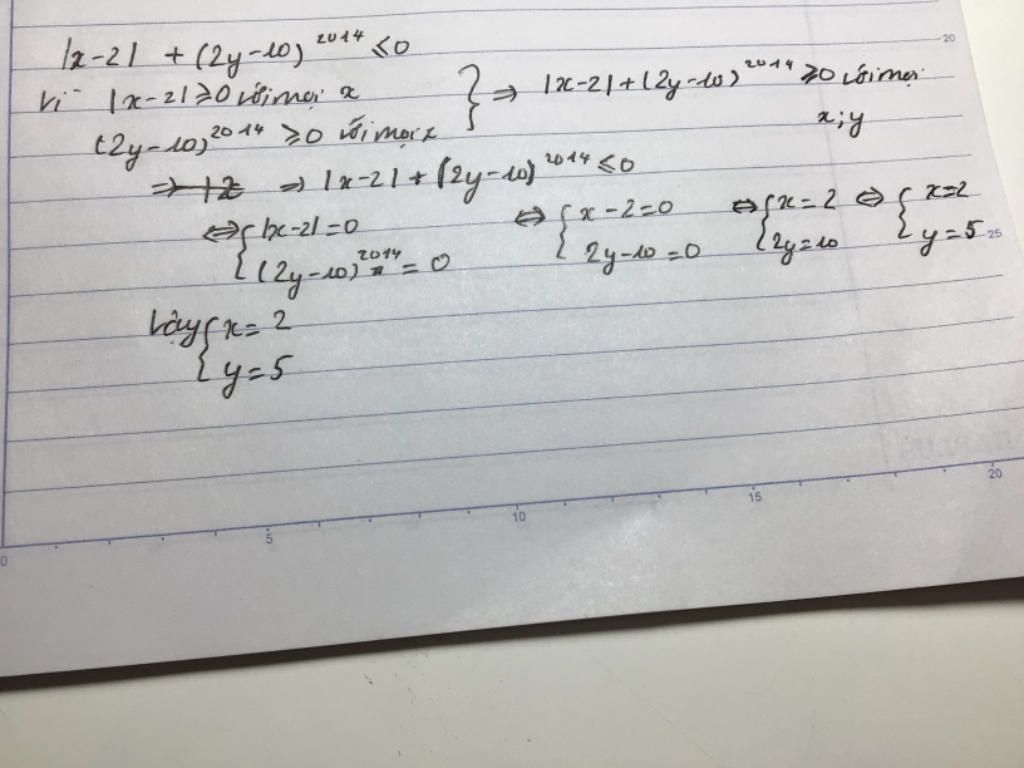 |x-2| + (2y-10)^2014 ≤0
Vì |x-2| ≥0 với mọi x
(2y-10)^2014 ≥0 với mọi x
} ⇒ |x-2|+(2y-10)^2014 ≥0 với mọi
x;y
⇒ |x-2| + (2y-10)^2014 ≤0
⇔ { |x-2|=0
(2y-10)^2014 = 0
⇔ { x-2=0
2y-10=0
⇔ { x=2
2y=10
⇔ { x=2
y=5
Vậy { x=2
y=5
0
5
10
15
20
20
25